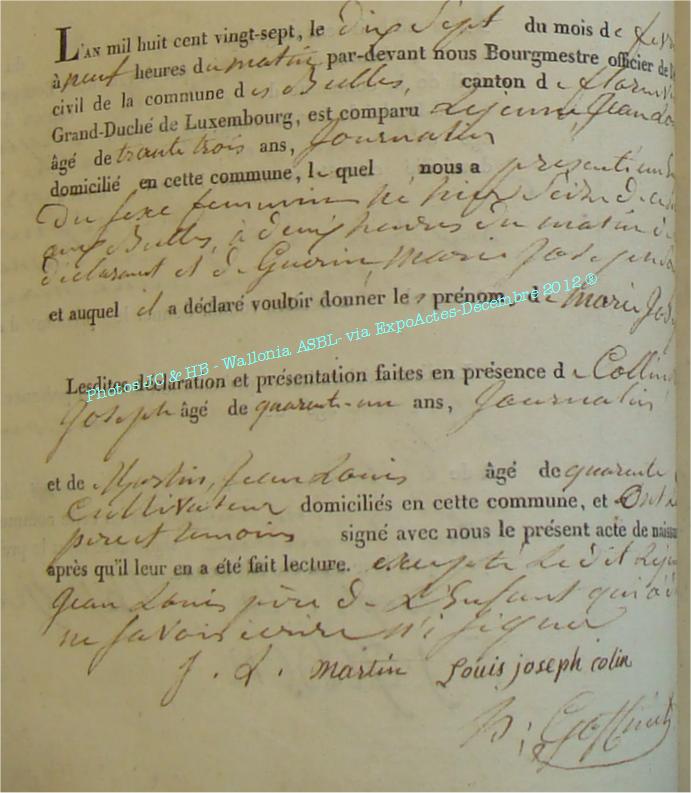 L'AN mil huit cent vingt-sept, le dix Sept du mois de
à neuf heures du matin par-devant nous Bourgmestre officier de l
civil de la commune des Bulles, canton de
Grand-Duché de Luxembourg, est comparu Lejeune, Jean
âgé de trante trois ans, Journalier
domicilié en cette commune, lequel nous a présenté un
Du sexe feminin né hier Seize de
aux Bulles, à deux heures du matin
déclarant et de Guerin, Marie
et auquel il a déclaré vouloir donner les prénoms de Marie
Photos JC & HB - Wallonia ASBL- via ExpoActes-Décembre 2012 ®
Lesdites déclaration et présentation faites en présence de Collin
Joseph âgé de quarente-un ans, Journalier
et de Martin, Jean Louis âgé de quarente
Cultivateur domiciliés en cette commune, et Ont
père et temoins signé avec nous le présent acte de naissa
après qu'il leur en a été fait lecture. excepté Ledit
Jean Louis père de L'Enfant qui a
ne savoir écrire ni signer
J. L. martin Louis joseph colin